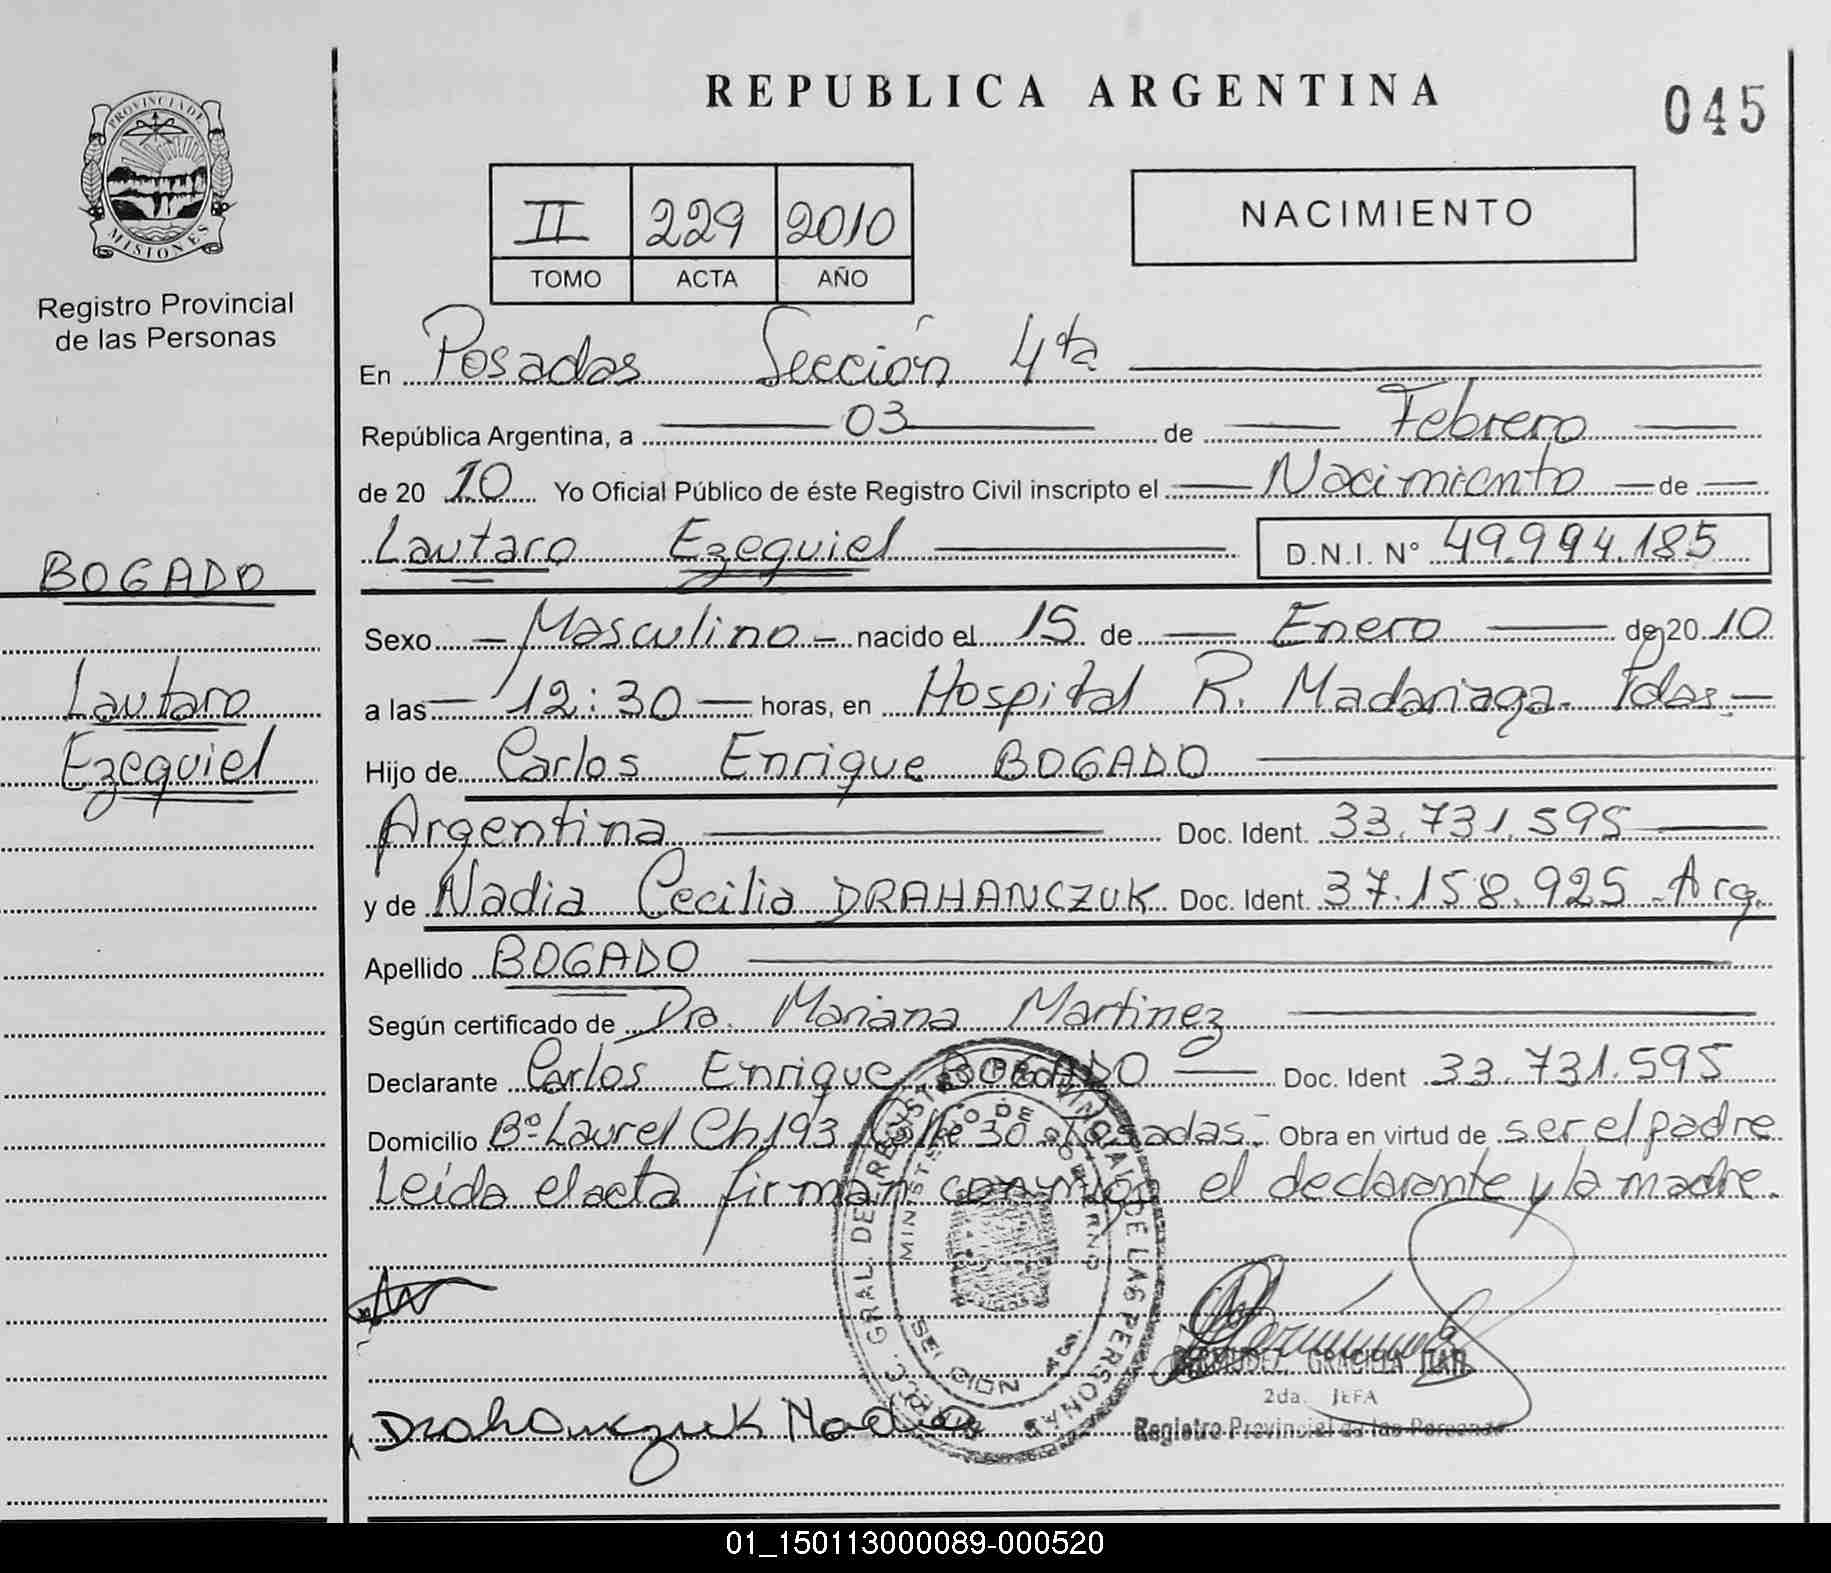 REPUBLICA ARGENTINA
045
PROVINCIA DE
MISIONES
Registro Provincial
de las Personas
II 229 2010
TOMO ACTA AÑO
NACIMIENTO
En Posadas Sección 4ta
República Argentina, a 03 de Febrero
de 20 10 Yo Oficial Público de éste Registro Civil inscripto el Nacimiento de
Lautaro Ezequiel D.N.I. N° 49.994.185
BOGADO
Lautaro
Ezequiel
Sexo Masculino nacido el 15 de Enero de 20 10
a las 12:30 horas, en Hospital R. Madariaga. Pdas.
Hijo de Carlos Enrique BOGADO
Argentina Doc. Ident. 33.731.595
y de Nadia Cecilia DRAHANCZUK Doc. Ident. 37.158.925 - Arg.
Apellido BOGADO
Según certificado de Dra. Mariana Martinez
Declarante Carlos Enrique BOGADO Doc. Ident 33.731.595
Domicilio B° Laurel Ch 193 Calle 30 Posadas.- Obra en virtud de ser el padre
Leída el acta firman conmigo el declarante y la madre.
GRAL. DE REGISTRO PROVINCIAL DE LAS PERSONAS
MINISTERIO DE GOBIERNO
SECCION 4a.
BERMUDEZ, GRACIELA ITATI
2da. JEFA
Registro Provincial de las Personas
Drahanczuk Nadia
01_150113000089-000520